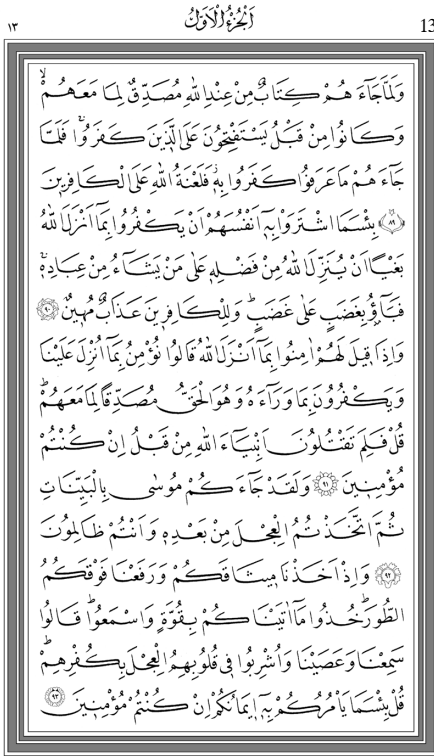 ١٣ اَلْجُزْءُ الْاَوَّلُ 13
وَلَمَّا جَٓاءَ هُمْ كِتَابٌ مِنْ عِنْدِ اللّٰهِ مُصَدِّقٌ لِمَا مَعَهُمْۙ
وَكَانُوا مِنْ قَبْلُ يَسْتَفْتِحُونَ عَلَى الَّذٖينَ كَفَرُواۚ فَلَمَّا
جَٓاءَ هُمْ مَا عَرَفُوا كَفَرُوا بِهٖۘ فَلَعْنَةُ اللّٰهِ عَلَى الْكَافِرٖينَ
﴿٨٩﴾ بِئْسَمَا اشْتَرَوْا بِهٖٓ اَنْفُسَهُمْ اَنْ يَكْفُرُوا بِمَٓا اَنْزَلَ اللّٰهُ
بَغْيًا اَنْ يُنَزِّلَ اللّٰهُ مِنْ فَضْلِهٖ عَلٰى مَنْ يَشَٓاءُ مِنْ عِبَادِهٖۚ
فَبَٓاؤُ بِغَضَبٍ عَلٰى غَضَبٍؕ وَلِلْكَافِرٖينَ عَذَابٌ مُهٖينٌ ﴿٩٠﴾
وَاِذَا قٖيلَ لَهُمْ اٰمِنُوا بِمَٓا اَنْزَلَ اللّٰهُ قَالُوا نُؤْمِنُ بِمَٓا اُنْزِلَ عَلَيْنَا
وَيَكْفُرُونَ بِمَا وَرَٓاءَهُ وَهُوَ الْحَقُّ مُصَدِّقًا لِمَا مَعَهُمْؕ
قُلْ فَلِمَ تَقْتُلُونَ اَنْبِيَٓاءَ اللّٰهِ مِنْ قَبْلُ اِنْ كُنْتُمْ
مُؤْمِنٖينَ ﴿٩١﴾ وَلَقَدْ جَٓاءَ كُمْ مُوسٰى بِالْبَيِّنَاتِ
ثُمَّ اتَّخَذْتُمُ الْعِجْلَ مِنْ بَعْدِهٖ وَاَنْتُمْ ظَالِمُونَ
﴿٩٢﴾ وَاِذْ اَخَذْنَا مٖيثَاقَكُمْ وَرَفَعْنَا فَوْقَكُمُ
الطُّورَؕ خُذُوا مَٓا اٰتَيْنَا كُمْ بِقُوَّةٍ وَاسْمَعُواؕ قَالُوا
سَمِعْنَا وَعَصَيْنَا وَاُشْرِبُوا فٖى قُلُوبِهِمُ الْعِجْلَ بِكُفْرِهِمْؕ
قُلْ بِئْسَمَا يَاْمُرُكُمْ بِهٖٓ اٖيمَانُكُمْ اِنْ كُنْتُمْ مُؤْمِنٖينَ ﴿٩٣﴾